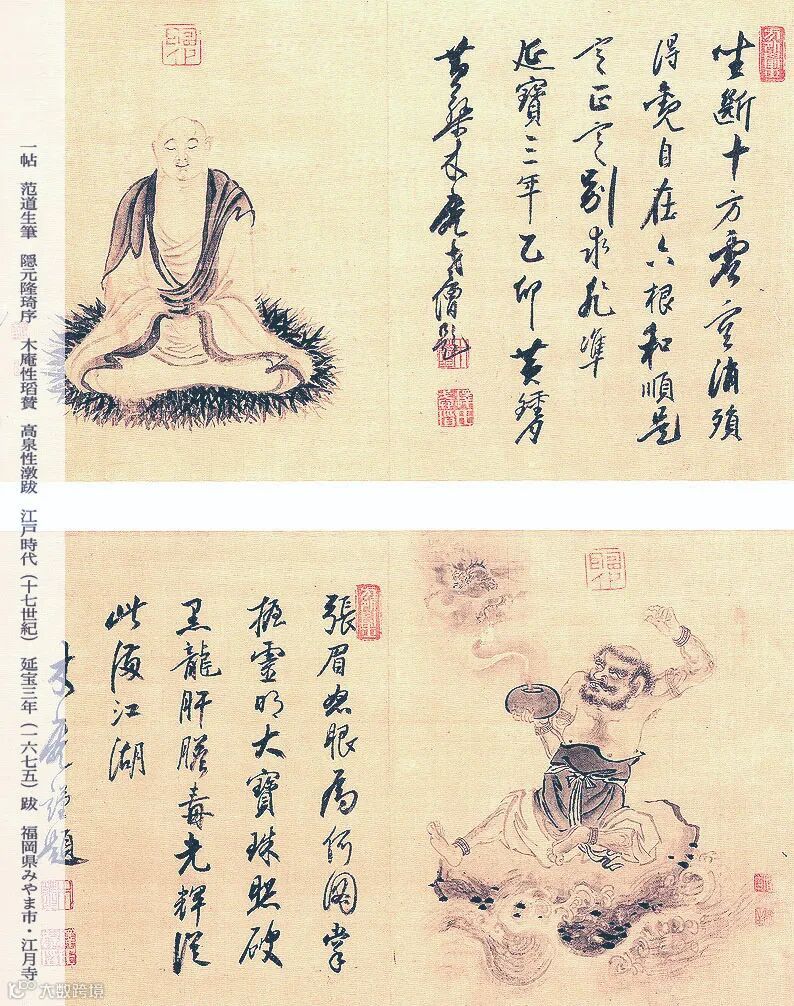 坐斷十方虛空消殞
得自在六根和順是
定正定別求非準
延寶三年乙卯黃鐘月
黃檗木菴老僧題
張眉怒眼為何圖掌
握靈明大寶珠照破
黑龍肝膽毒光輝從
此滿江湖
木菴瑫題
一帖　范道生筆　隠元隆琦序　木庵性瑫賛　高泉性潡跋　江戸時代（十七世紀）　延宝三年（一六七五）跋　福岡県みやま市・江月寺
大数跨境